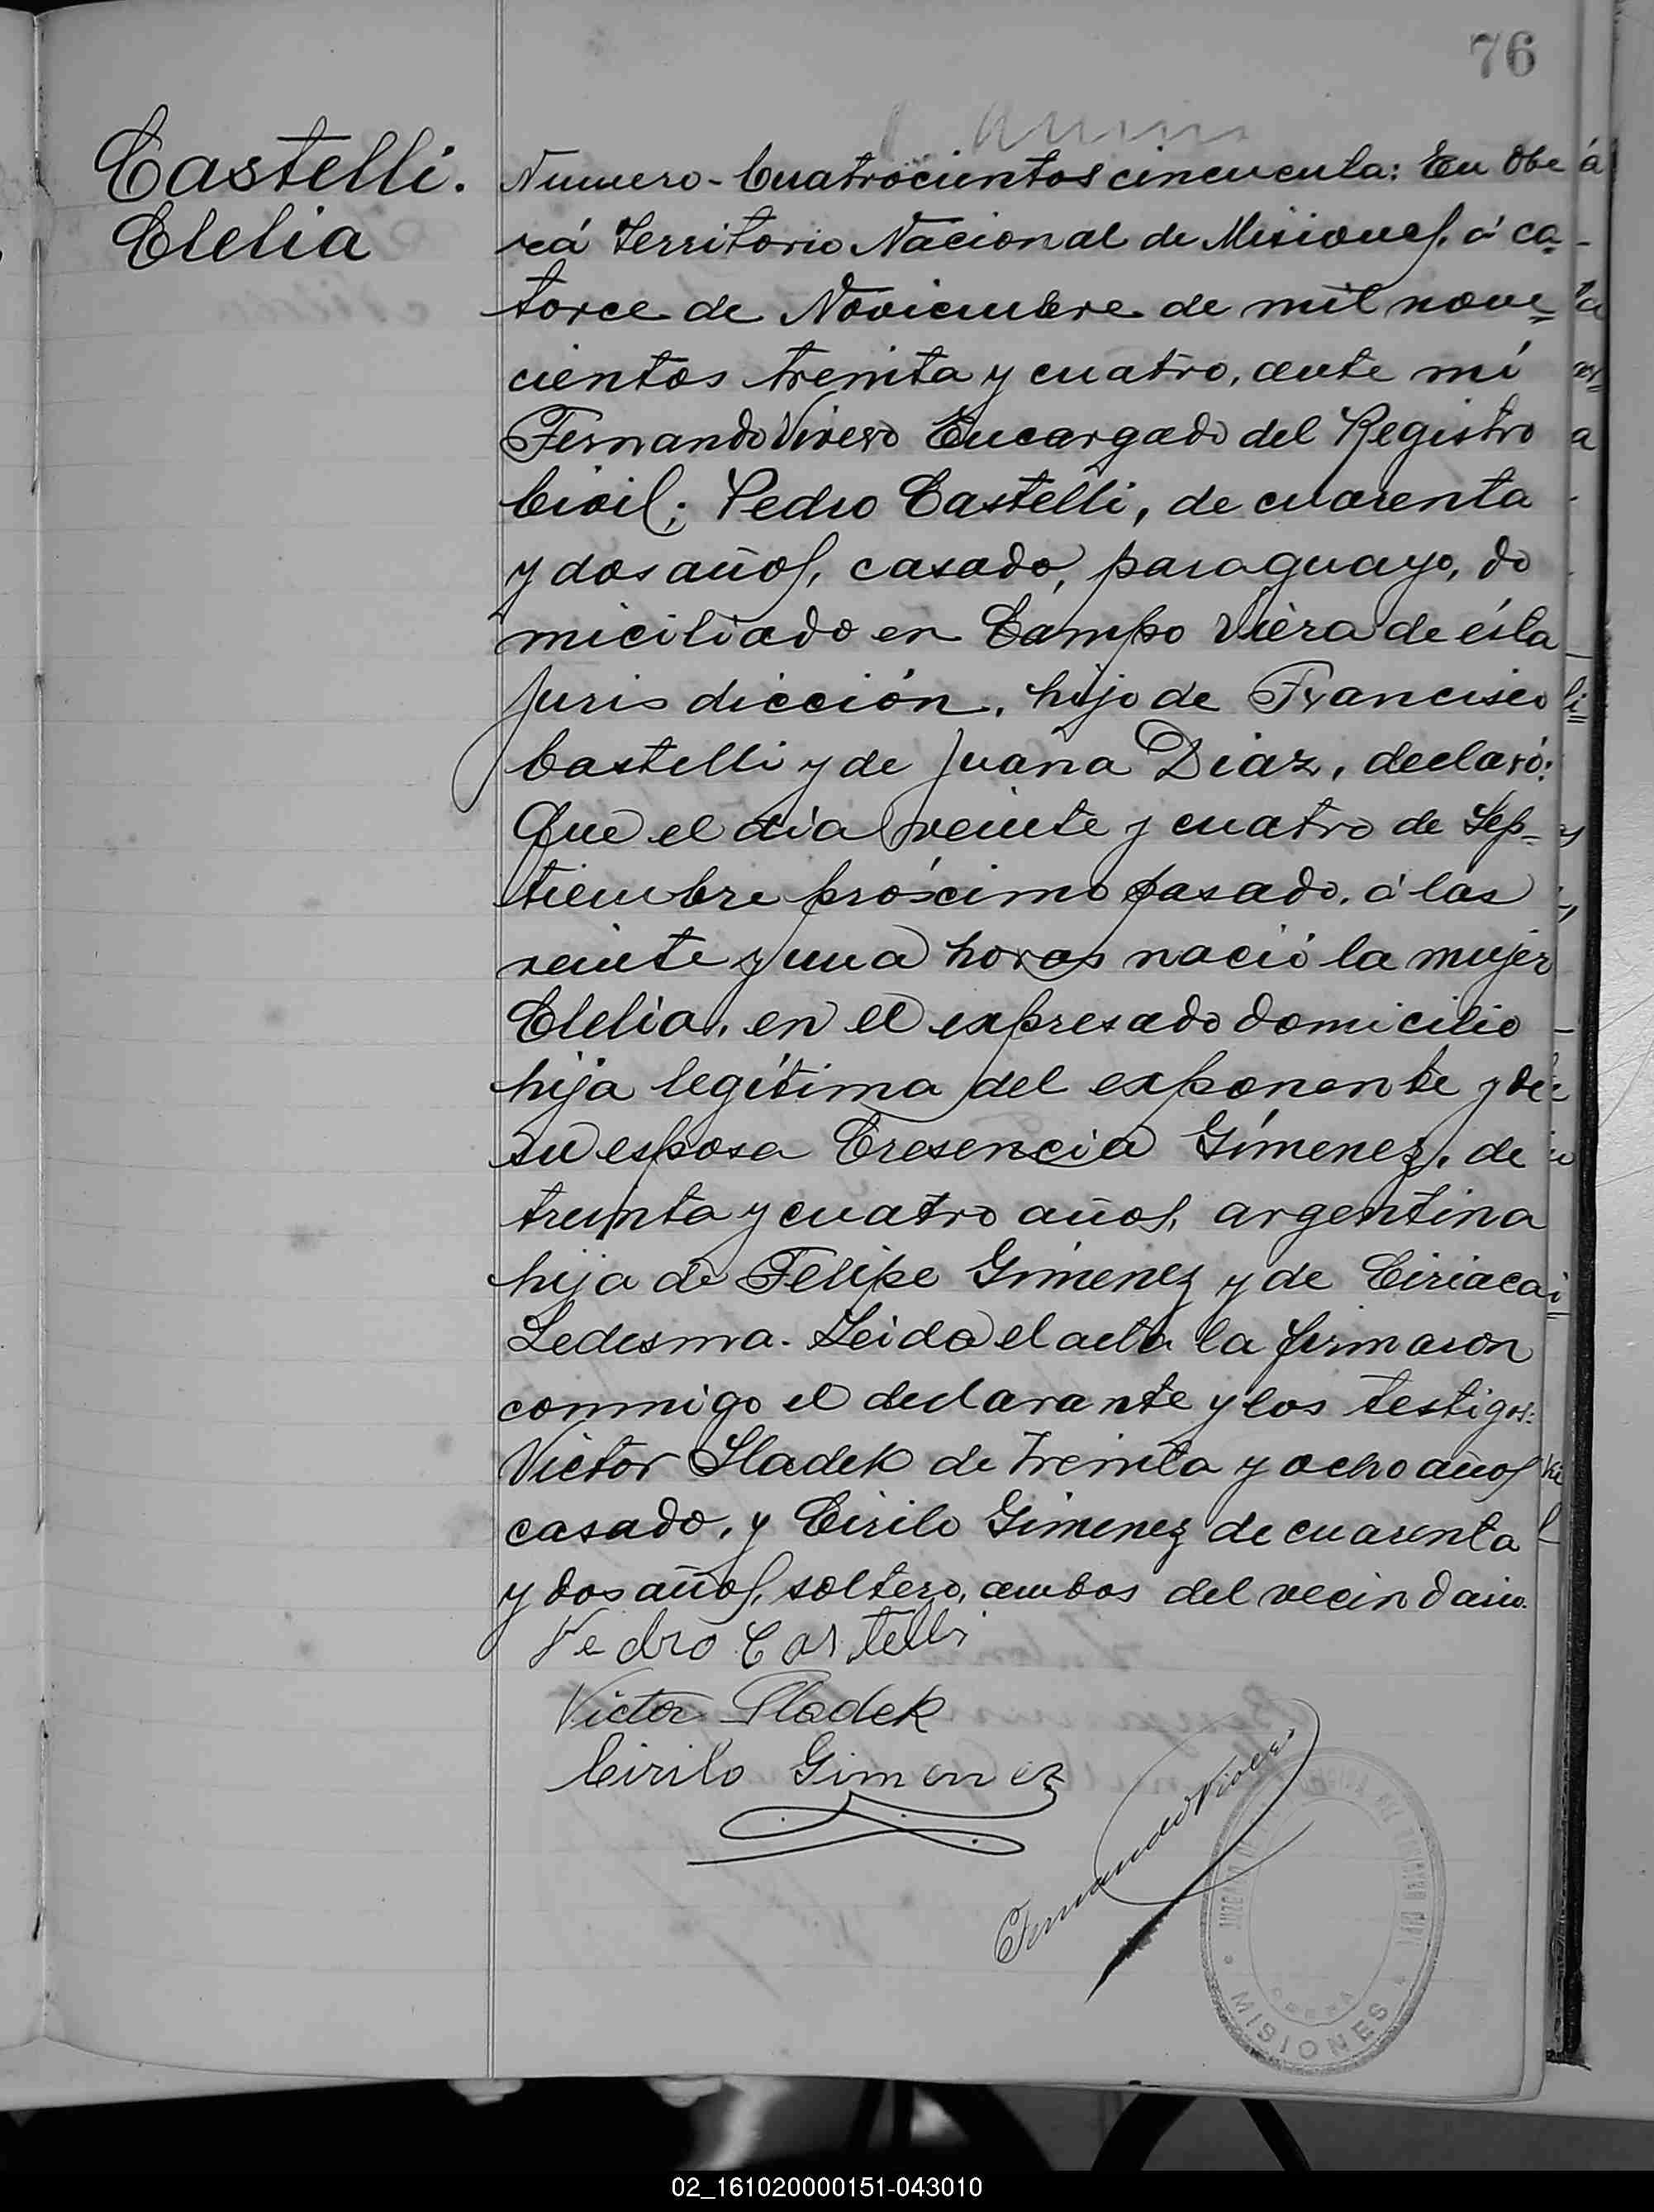 76
Castelli.
Clelia
Numero - Cuatrocientos cincuenta: En Obe
rá Territorio Nacional de Misiones, á ca-
torce de Noviembre de mil nove=
cientos treinta y cuatro, ante mí
Fernando Vivero Encargado del Registro
Civil; Pedro Castelli, de cuarenta
y dos años, casado, paraguayo, do
miciliado en Campo Viera de ésta
Jurisdicción, hijo de Francisco
Castelli y de Juana Diaz, declaró:
Que el dia veinte y cuatro de Sep-
tiembre próximo pasado, á las
veinte y una horas nació la mujer
Clelia, en el expresado domicilio
hija legítima del exponente y de
su esposa Cresencia Gímenez, de
treinta y cuatro años, argentina
hija de Felipe Gímenez y de Ciriaca
Ledesma. Leida el acta la firmaron
conmigo el declarante y los testigos:
Victor Sladek de treinta y ocho años
casado, y Cirilo Gimenez de cuarenta
y dos años, soltero, ambos del vecindario.
Pedro Castelli
Victor Sladek
Cirilo Gimenez
Fernando Vivero
MISIONES
02_161020000151-043010